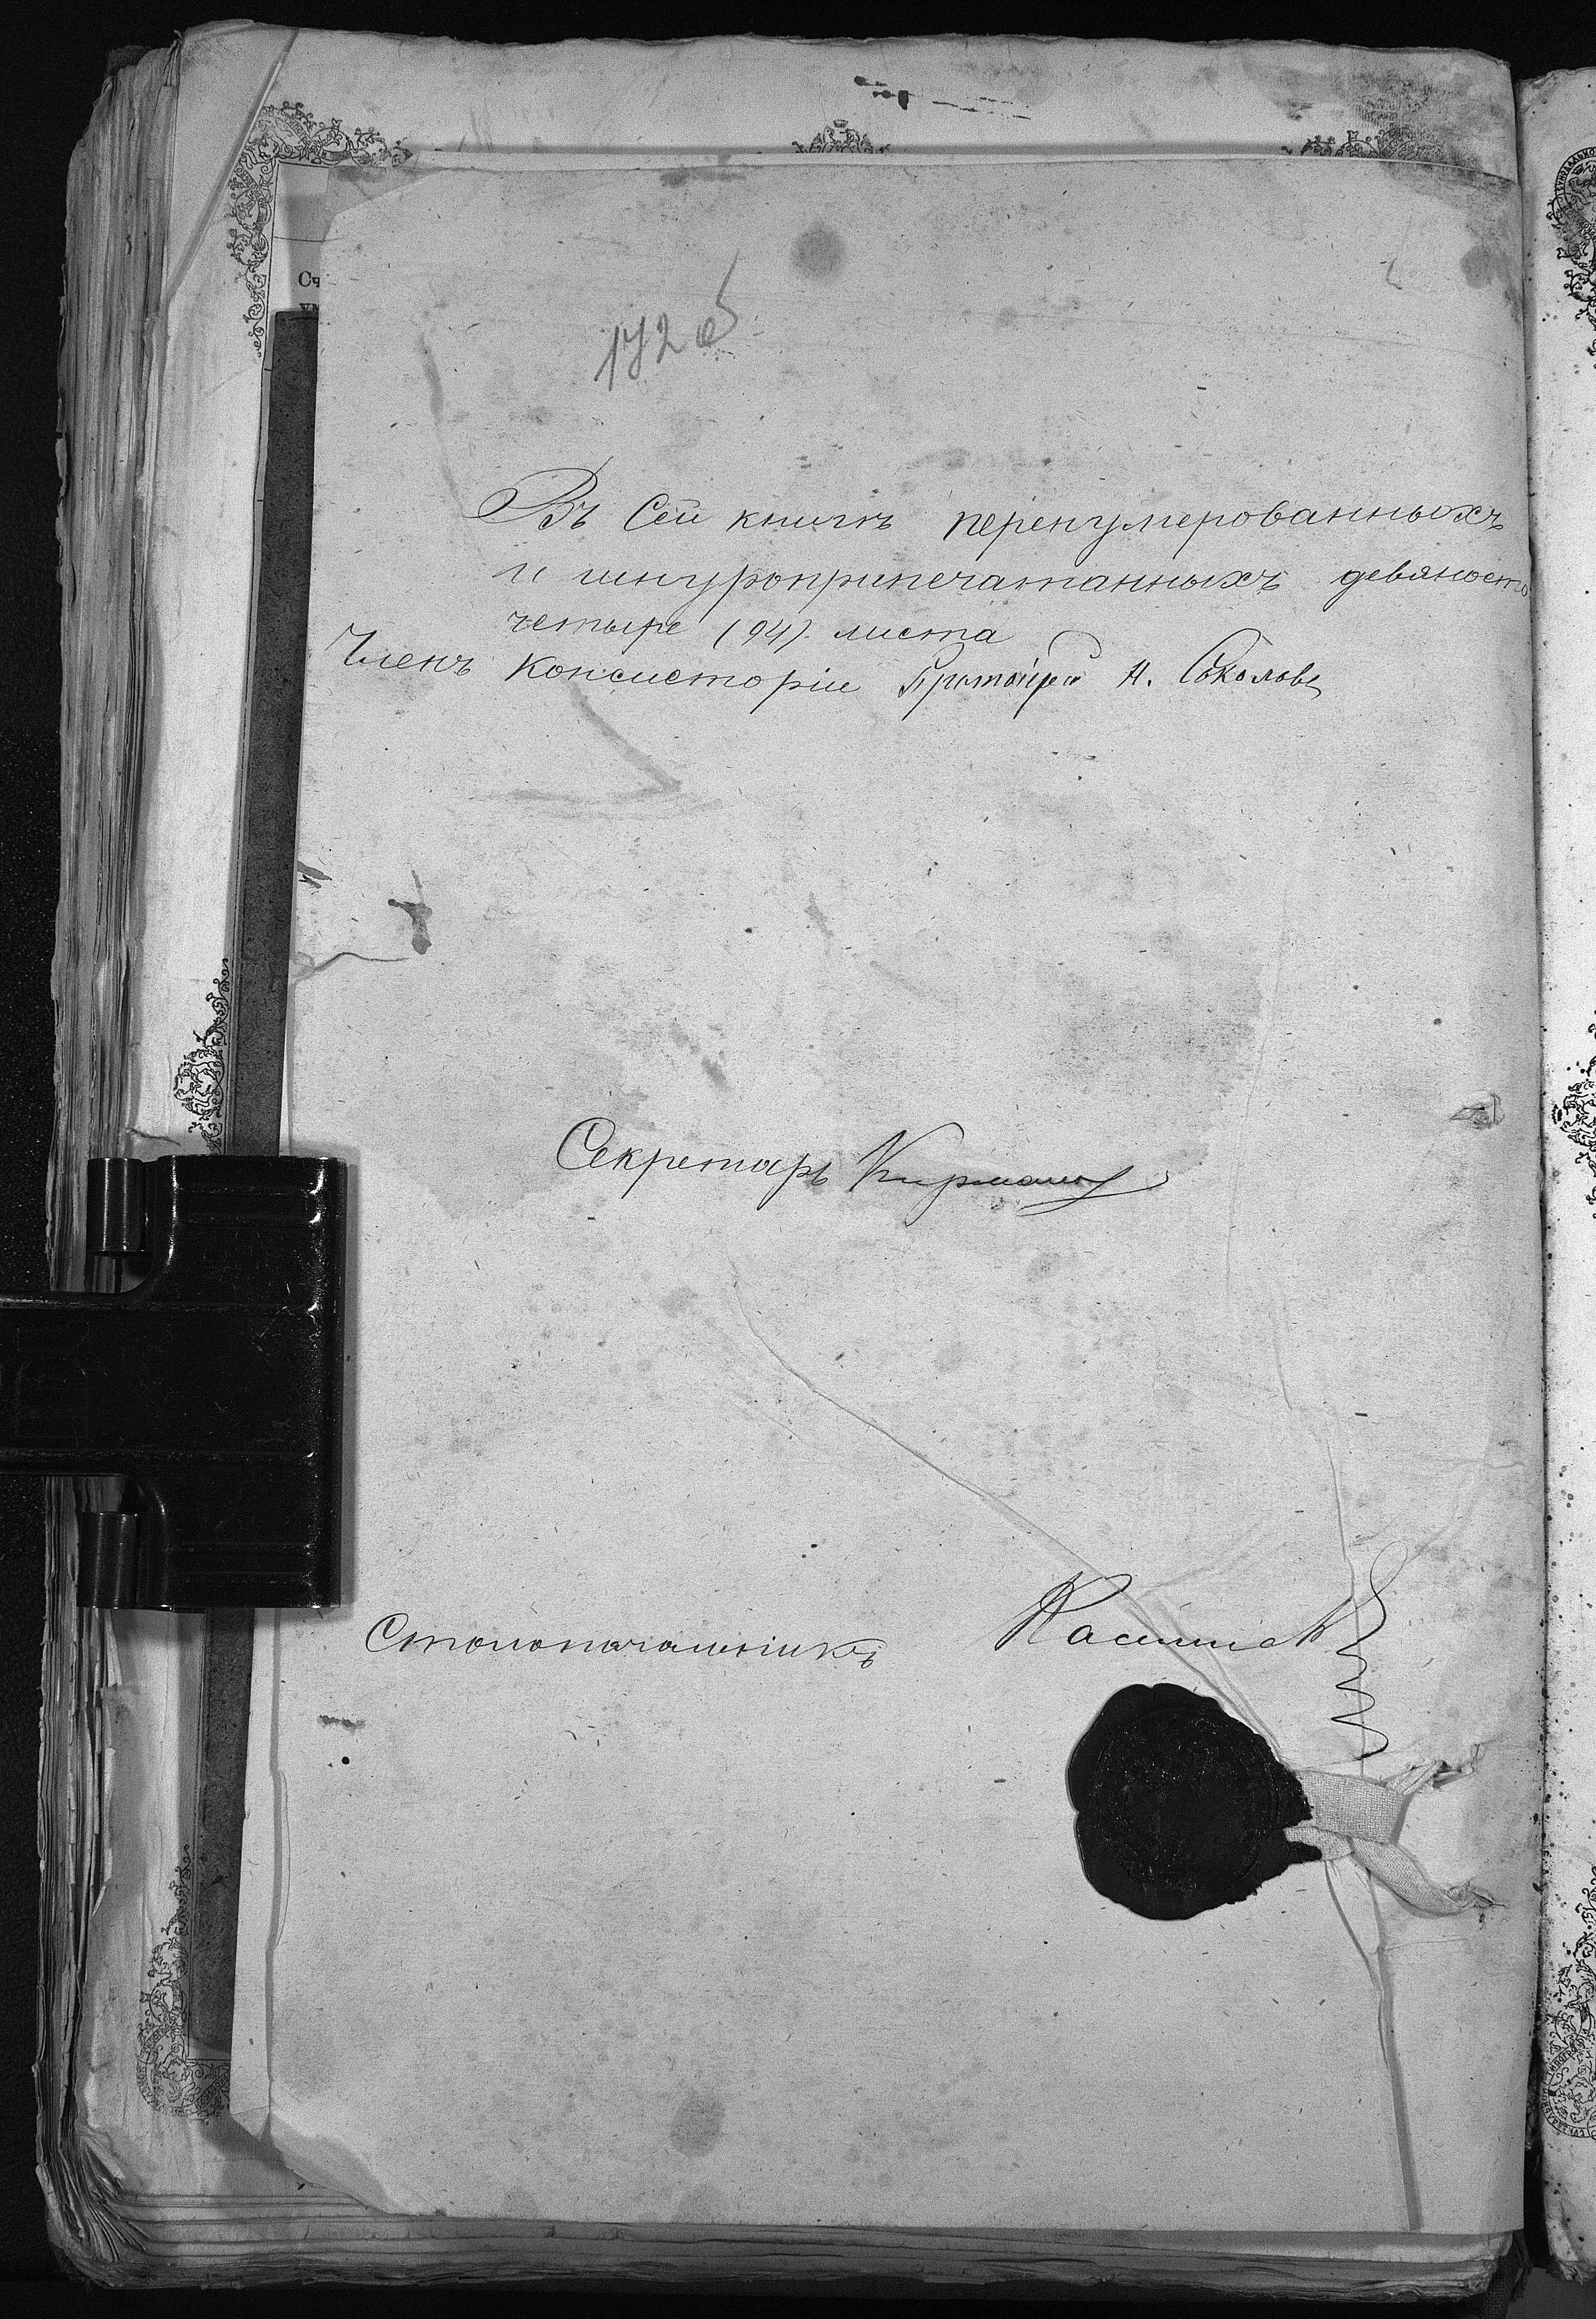 172 об
Въ сей книгѣ перенумерованныхъ
и шнуроприпечатанныхъ девяносто
четыре (94) листа
Членъ Консисторіи Протоіерей Н. Соколовъ
Секретарь
Столоначальникъ